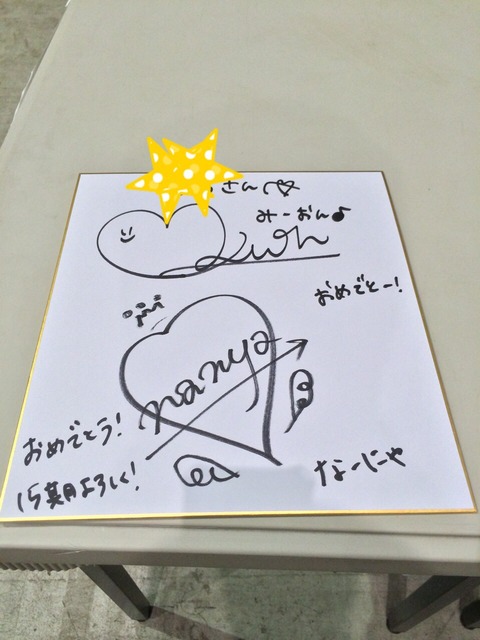 さん
みーおん♪
おめでとー!
nanya
おめでとう!
15期よろしく!
なーにゃ